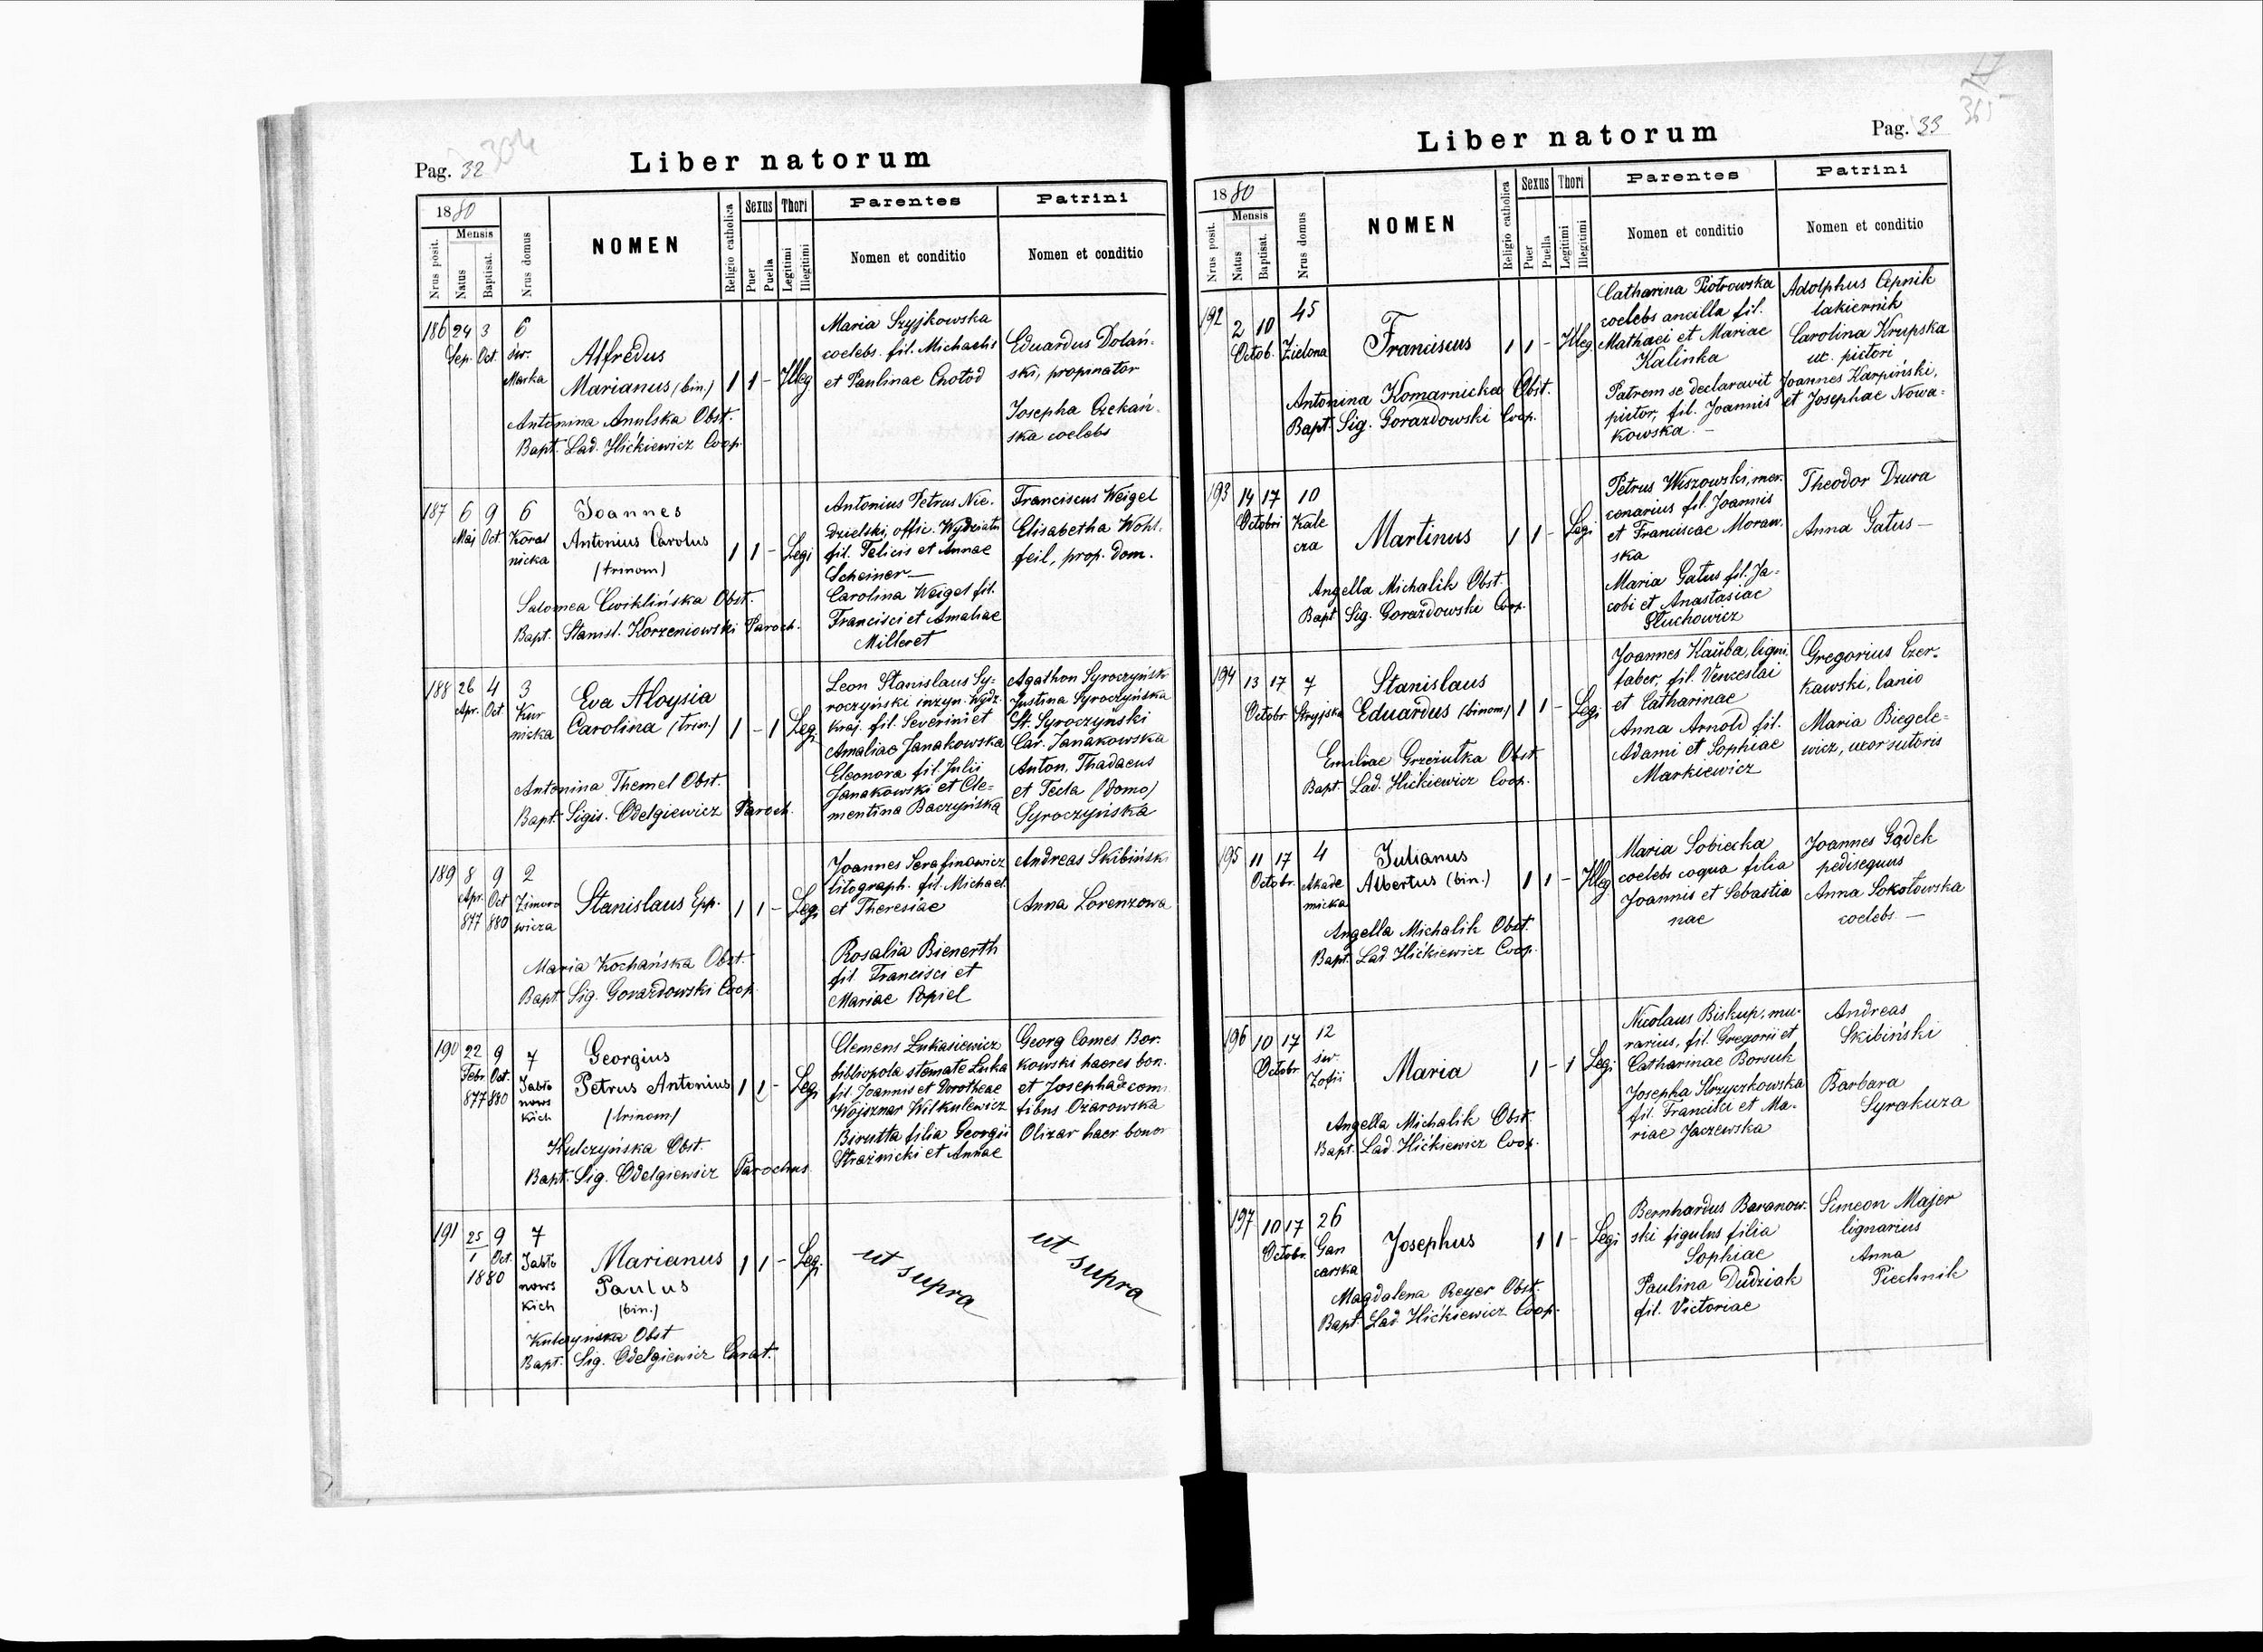 Pag. 32
304
Liber natorum
1880
Nrus posit.
Mensis
Natus
Baptisat.
Nrus domus
NOMEN
Religio catholica
Sexus
Puer
Puella
Thori
Legitimi
Illegitimi
Parentes
Nomen et conditio
Patrini
Nomen et conditio
186 24 3 6
Sep. Oct. św.
Marka
Alfredus
Marianus (bin.) 1 1 - Illeg
Antonina Anulska Obst.
Bapt. Lad. Hićkiewicz Coop.
Maria Szyjkowska
coelebs. fil. Michaelis
et Paulinae Chotod
Eduardus Dolań-
ski, propinator
Josepha
ska coelebs
187 6 9 6
Maj Oct Koral
nicka
Joannes
Antonius Carolus
(trinom) 1 1 - Legi
Salomea Cwiklińska Obst.
Bapt. Stanisl. Korzeniowski Paroch.
Antonius Petrus Nie-
dzielski, offic. Wydziału
fil. Felicis et Annae
Scheiner—
Carolina Weigel fil.
Francisci et Amaliae
Milleret
Franciscus Weigel
Elisabetha Wohl-
feil, prop. dom.
188 26 4 3
Apr. Oct Kur
nicka
Eva Aloysia
Carolina (trin.) 1 - 1 Legi
Antonina Themel Obst.
Bapt. Sigis. Odelgiewicz Paroch.
Leon Stanislaus Sy-
roczyński inzyn. Wydz.
Kraj. fil. Severini et
Amaliae Janakowska
Eleonora fil. Julii
Janakowski et Cle-
mentina Baczyńska
Agathon Syroczyński
Justina Syroczyńska
St. Syroczyński
Car. Janakowska
Anton. Thadaeus
et Tecla (domo)
Syroczyńska
189 8 9 2
Apr. Oct Zimoro
877 880 wicza
Stanislaus Epp. 1 1 - Legi
Maria Kochańska Obst.
Bapt. Sig. Gorazdowski Coop.
Joannes Serafinowicz
litograph. fil. Michael.
et Theresiae
Rosalia Bienerth
fil. Francisci et
Mariae Popiel
Andreas Skibiński
Anna Lorenzowa
190 22 9 7
Febr. Oct. Jabło
877 880 nows
kich
Georgius
Petrus Antonius 1 1 - Legi
(trinom)
Kulczyńska Obst.
Bapt. Sig. Odelgiewicz Parochus.
Clemens Łukasiewicz
bibliopola stemate Łuka
fil. Joannis et Dorotheae
Wojsznar Wilkulewicz
Birutta filia Georgii
Strażnicki et Annae
Georg Comes Bor-
kowski haeres bon.
et Josepha de com
tibus Ożarowska
Olizar haer. bonor
191 25 9 7
1 Oct. Jabło
1880 nows
kich
Marianus 1 1 - Legi.
Paulus
(bin.)
Kulczyńska Obst
Bapt. Sig. Odelgiewicz Curat.
ut supra
ut supra
Liber natorum
Pag. 33
365
1880
Nrus posit.
Mensis
Natus
Baptisat.
Nrus domus
NOMEN
Religio catholica
Sexus
Puer
Puella
Thori
Legitimi
Illegitimi
Parentes
Nomen et conditio
Patrini
Nomen et conditio
192 2 10 45
Octob. Zielona
Franciscus 1 1 - Illeg
Antonina Komarnicka Obst.
Bapt. Sig. Gorazdowski Coop.
Catharina Piotrowska
coelebs ancilla fil.
Mathaei et Mariae
Kalinka
Adolphus Cepnik
lakiernik
Carolina Krupska
ux. pictori
Patrem se declaravit Joannes Karpiński,
pictor, fil. Joannis et Josephae Nowa-
kowska. —
193 14 17 10
Octobri Kale
cza
Martinus 1 1 - Legi
Angella Michalik Obst.
Bapt Sig. Gorazdowski Coop.
Petrus Wiszowski, mer-
conarius fil. Joannis
et Franciscae Moraw.
ska
Maria Gatus fil. Ja-
cobi et Anastasiae
Pluchowicz
Theodor Dzura
Anna Gatus—
194 13 17 7
Octobr Stryjska
Stanislaus
Eduardus (binom) 1 1 - Legi
Emiliae Grzeiutka Obst
Bapt. Lad. Hićkiewicz Coop.
Joannes Kauba, ligni
faber, fil. Venceslai
et Catharinae
Anna Arnold fil.
Adami et Sophiae
Markiewicz
Gregorius Czer-
kawski, lanio
Maria Biegele-
wicz, uxor sutoris
195 11 17 4
Octobr. Akade
micka
Julianus
Albertus (bin.) 1 1 - Illeg
Angella Michalik Obst.
Bapt. Lad. Hićkiewicz Coop.
Maria Sobiecka
coelebs coqua filia
Joannis et Sebastia
nae
Joannes Gądek
pedisequus
Anna Sokołowska
coelebs. —
196 10 17 12
Octobr św.
Zofii
Maria 1 - 1 Legi
Angella Michalik Obst.
Bapt. Lad. Hićkiewicz Coop.
Nicolaus Biskup, mu-
rarius, fil. Gregorii et
Catharinae Borsuk
Josepha Krzyczkowska
fil. Francisci et Ma-
riae Jaczewska
Andreas
Skibiński
Barbara
Syrakuza
197 10 17 26
Octobr. Gan
carska
Josephus 1 1 - Legi
Magdalena Reyer Obst.
Bapt. Lad. Hićkiewicz Coop.
Bernhardus Baranow-
ski figulus filia
Sophiae
Paulina Dudziak
fil. Victoriae
Simeon Majer
lignarius
Anna
Piechnik